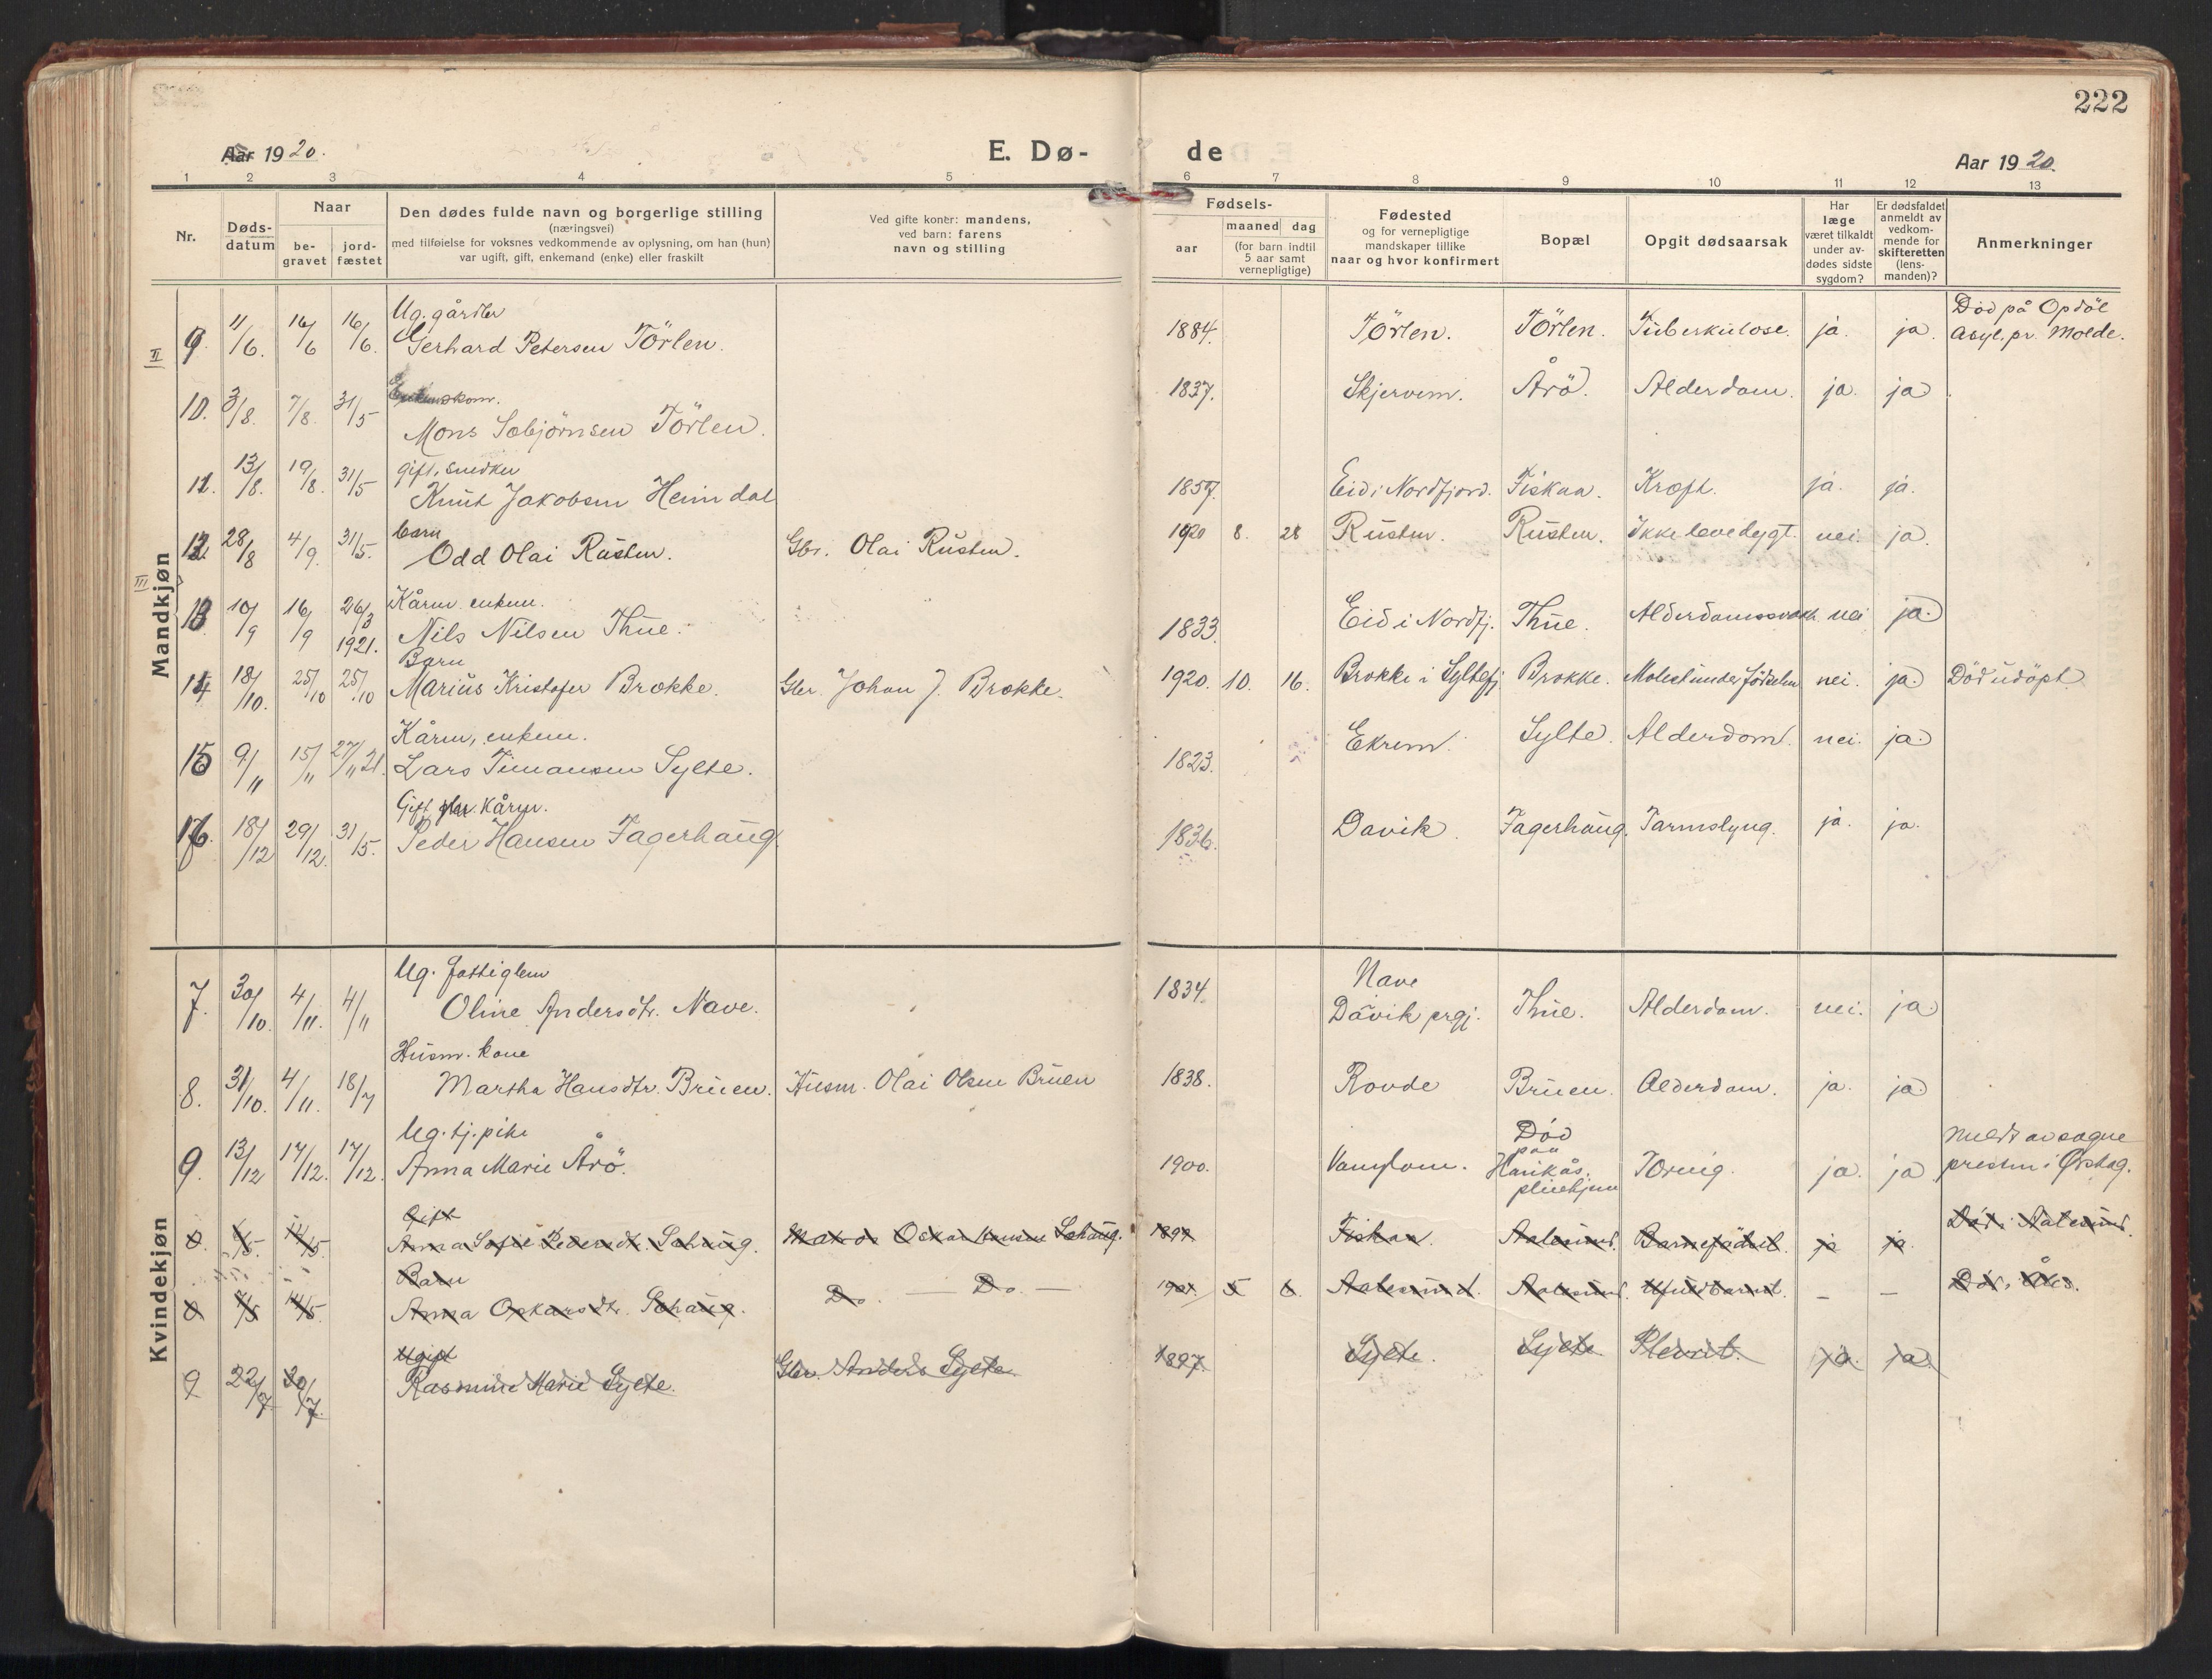 222
Aar 1920.
E. Dø-
de
Aar 1920.
1 2 3 4 5 6 7 8 9 10 11 12 13
Nr.
Døds-
datum
Naar
be-
gravet
jord-
fæstet
Den dødes fulde navn og borgerlige stilling
(næringsvei)
med tilføielse for voksnes vedkommende av oplysning, om han (hun)
var ugift, gift, enkemand (enke) eller fraskilt
Ved gifte koner: mandens,
ved barn: farens
navn og stilling
Fødsels-
aar
maaned dag
(for barn indtil
5 aar samt
vernepligtige)
Fødested
og for vernepligtige
mandskaper tillike
naar og hvor konfirmert
Bopæl
Opgit dødsaarsak
Har
læge
været tilkaldt
under av-
dødes sidste
sygdom?
Er dødsfaldet
anmeldt av
vedkom-
mende for
skifteretten
(lens-
manden)?
Anmerkninger
Mandkjøn
II
III
Ug. gårdbr
9. 11/6. 16/6 16/6. Gerhard Petersen Törlen. 1884. Törlen. Törlen. Tuberkulose. ja. ja. Död på Opdöl
Asyl. pr. Molde.
10. 3/8. 7/8. 31/5 Mons Sæbjörnsen Törlen. 1837. Skjervem. Årö. Alderdom. ja. ja.
gift, snedker
11. 13/8. 19/8. 31/5 Knut Jakobsen Heimdal 1857. Eid i Nordfjord. Fiskaa. Kræft. ja. ja.
barn
12. 28/8 4/9. 31/5. Odd Olai Rusten. Gbr. Olai Rusten. 1920 8. 28 Rusten. Rusten. Ikke levedygt. nei. ja.
Kårm. enkem.
13 10/9 16/9 26/3 1921. Nils Nilsen Thue. 1833. Eid i Nordfj. Thue. Alderdomssvakh. nei ja.
Barn
14 18/10. 25/10 25/10 Marius Kristofer Brokke. Gbr. Johan J. Brokke. 1920. 10. 16. Brokke i Syltefj. Brokke. Molest under födselen nei. ja. Död udöpt.
Kårm, enkem.
15 9/11 15/11 27/11 21. Lars Timansen Sylte. 1823. Ekrem. Sylte. Alderdom. nei. ja.
Gift, gbr. Kårm.
16. 18/12 29/12. 31/5. Peder Hansen Fagerhaug. 1836. Davik. Fagerhaug. Tarmslyng. ja. ja.
Kvindekjøn
Ug. fattiglem
7. 30/10. 4/11. 4/11 Oline Andersdtr. Nave. 1834. Nave
Davik prgj. Thue. Alderdom. nei. ja.
Husm. kone
8. 31/10. 4/11. 18/7 Martha Hansdtr. Bruen. Husm. Olai Olsen Bruen 1838. Rovde Bruen. Alderdom. ja. ja.
Ug. tj. pike
9. 13/12 17/12. 17/12. Anna Marie Årö. 1900. Död
paa ja. ja Meldt av sogne
presten i Ørskog.
Gift
8. 6/5. 14/5. Anna Sofie Pedersdtr. Sohaug. Oskar Sohaug. Fiskaa. Aalesund. Barnefödsel. ja ja. Död i Aalesund.
Barn
8 14/5. Anna Oskarsdtr. Sohaug. Do. — Do. — 5 6. Aalesund. Aalesund. Ufuldbaaret. — —
Ugift
9 22/7 30/7. Rasmine Marie Sylte. Gbr. Anders Sylte 1897. Sylte. Sylte Plevrit. ja. ja.